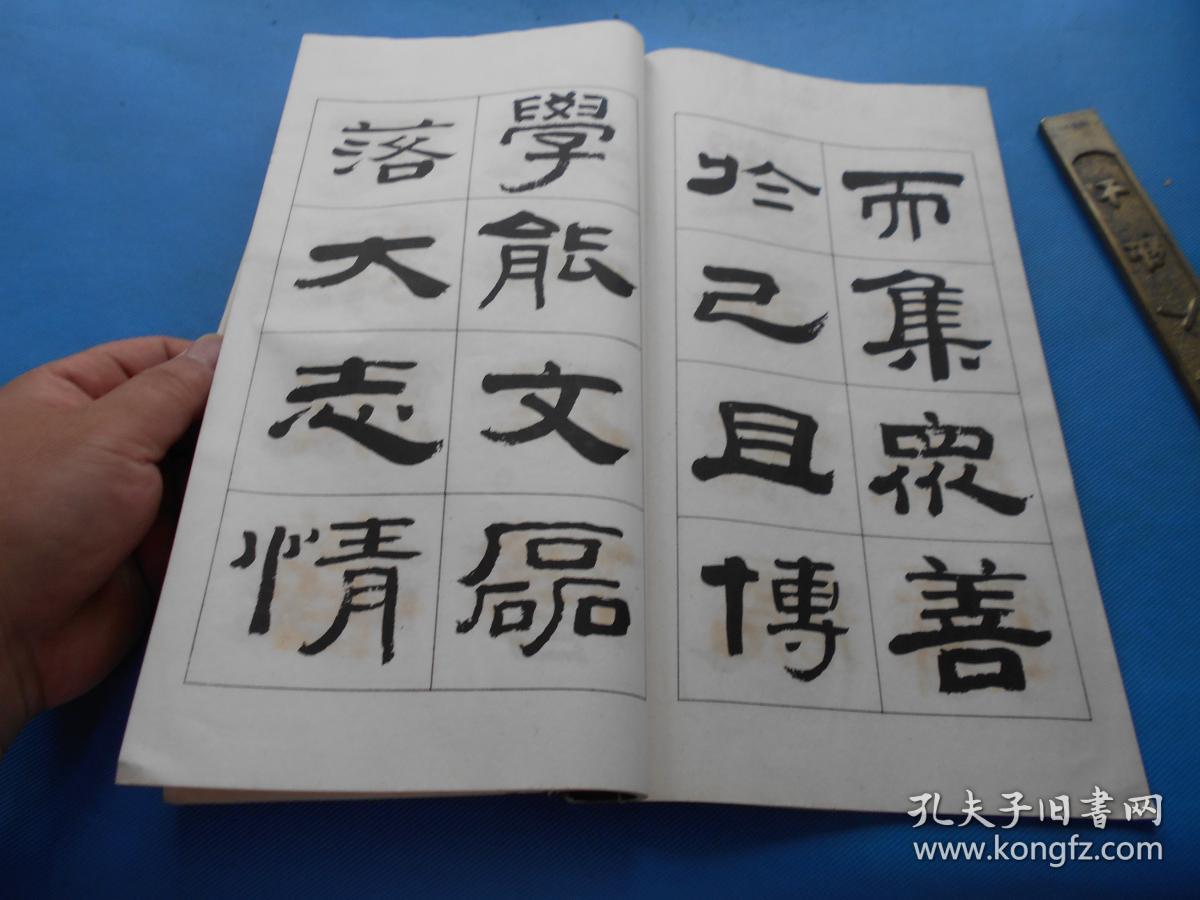 而集眾善
於己且博
學能文磊
落大志情
孔夫子旧书网
www.kongfz.com